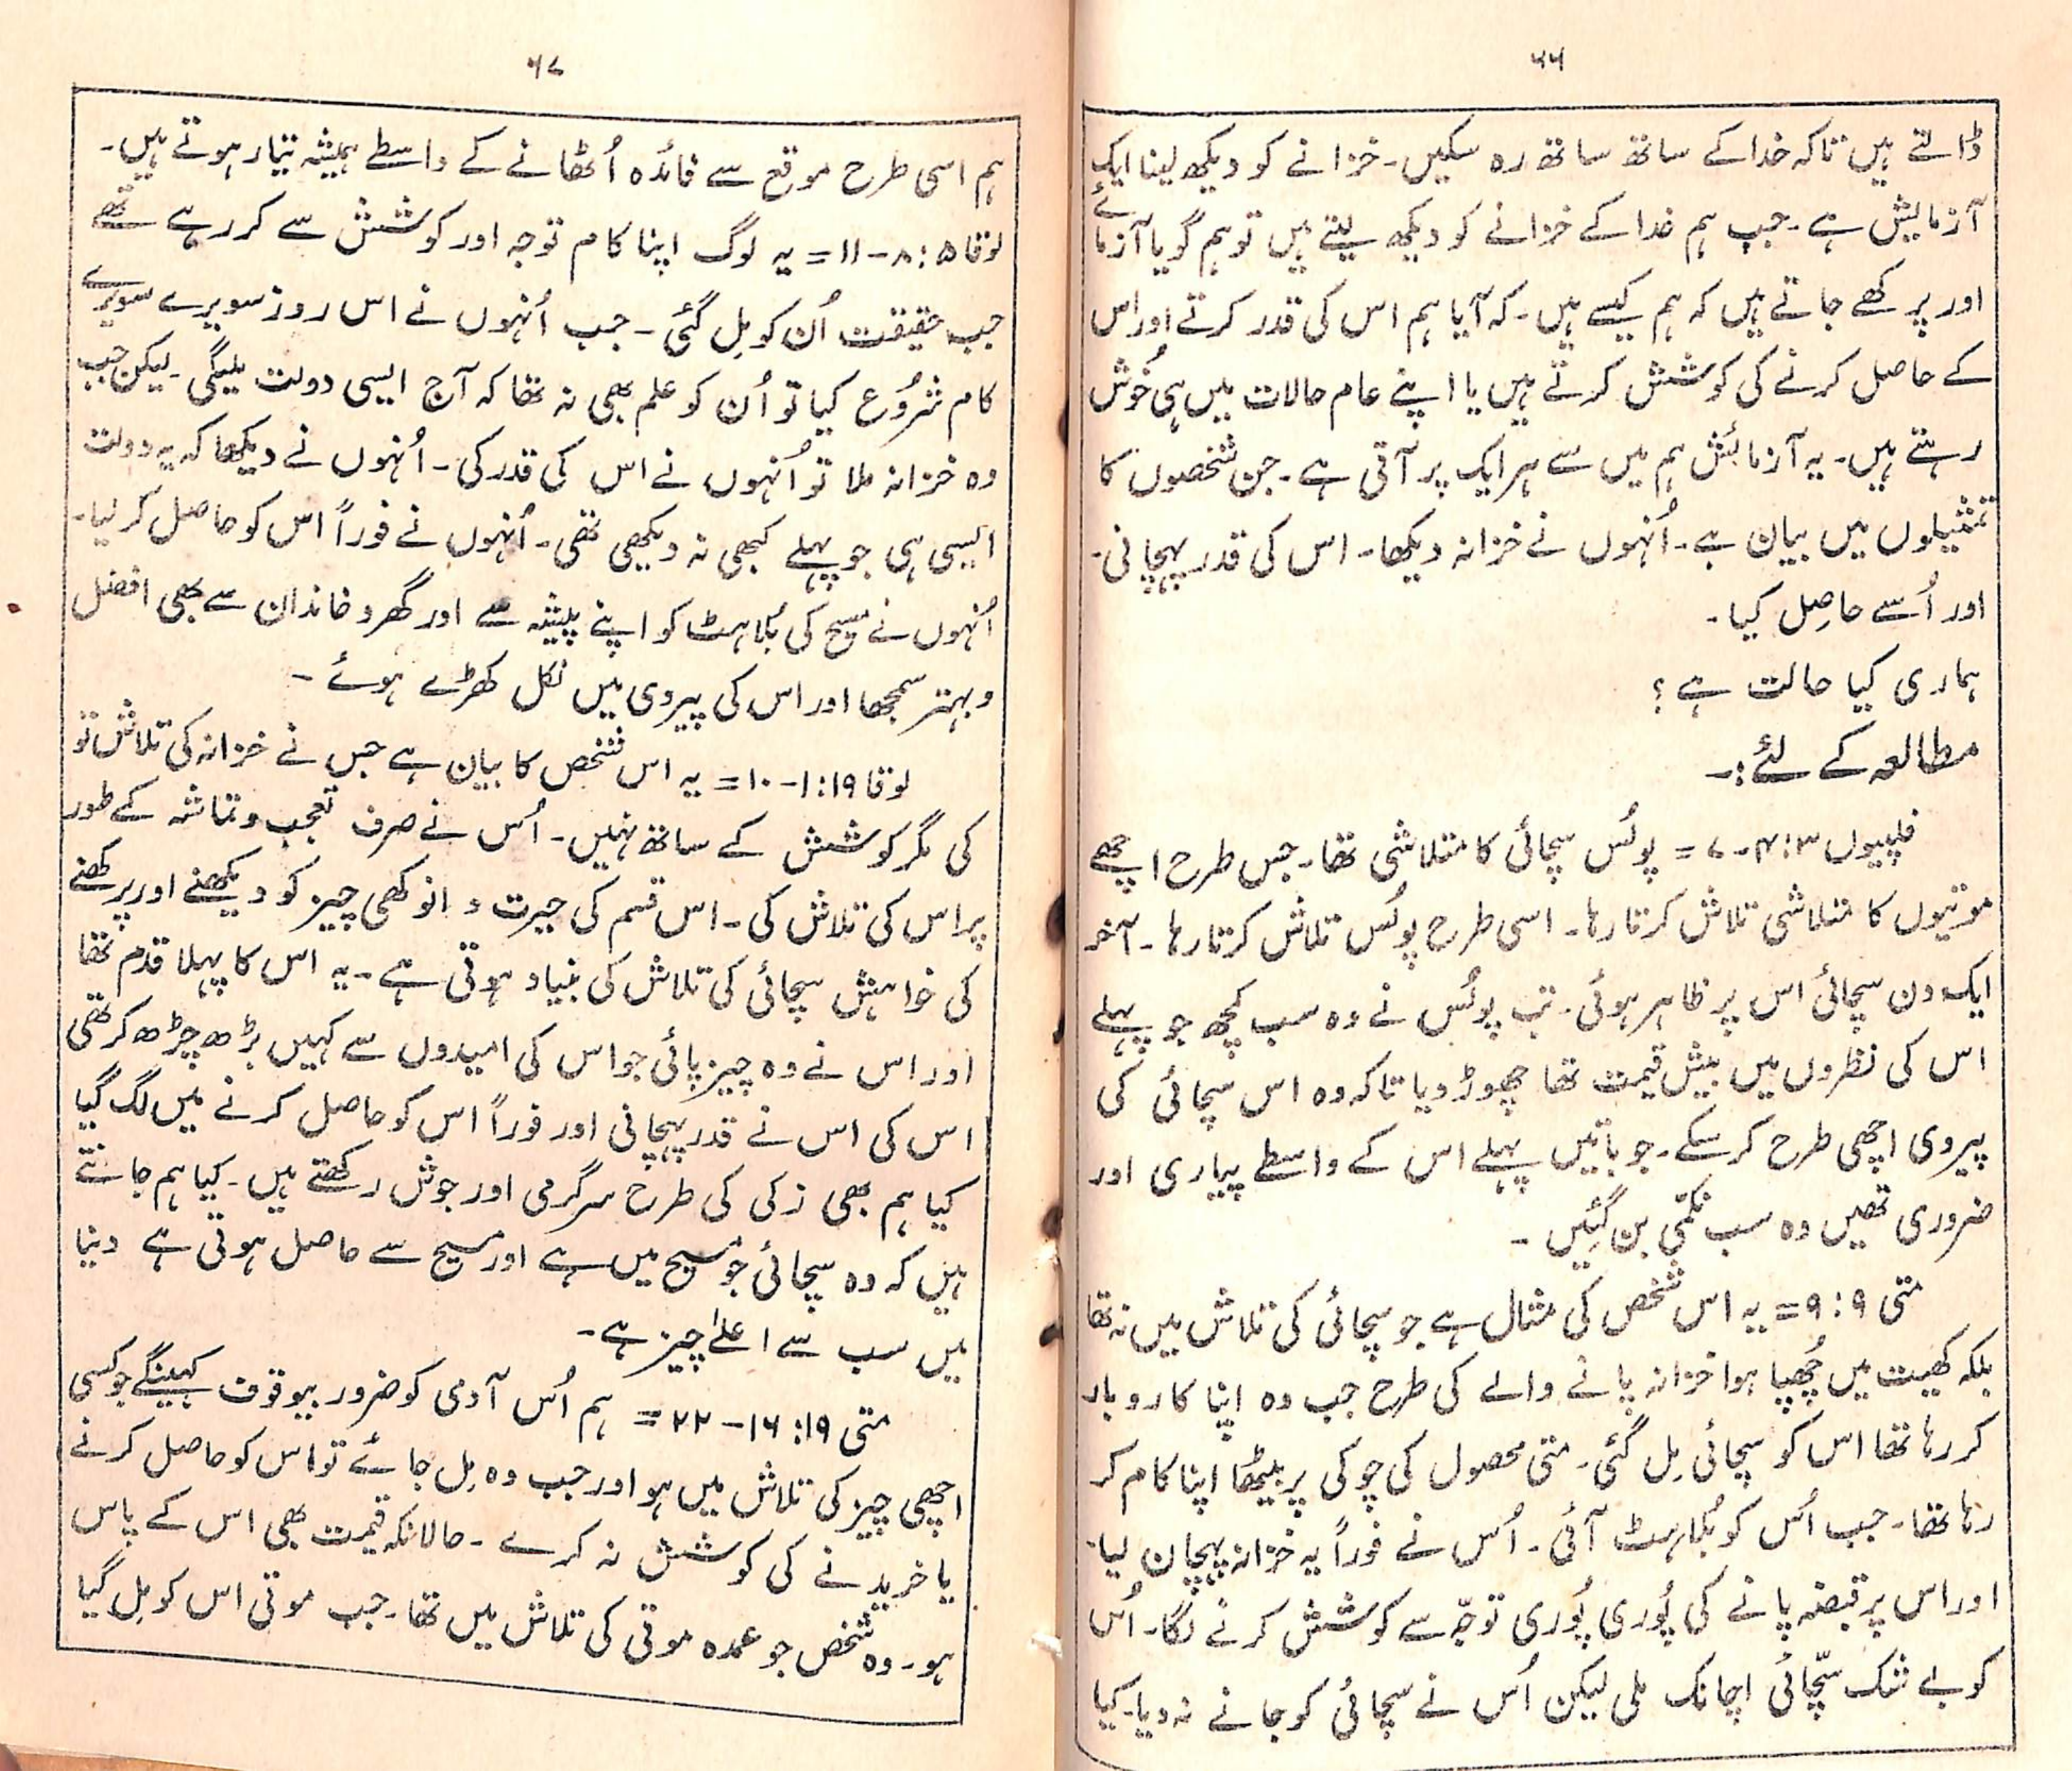 ۶۶
ڈالتے ہیں تاکہ خدا کے ساتھ ساتھ رہ سکیں۔ خزانے کو دیکھ لینا ایک
آزمایش ہے۔ جب ہم خدا کے خزانے کو دیکھ لیتے ہیں تو ہم گویا آزمائے
اور پرکھے جاتے ہیں کہ ہم کیسے ہیں۔ کہ آیا ہم اس کی قدر کرتے اور اس
کے حاصل کرنے کی کوشش کرتے ہیں یا اپنے عام حالات میں ہی خُوش
رہتے ہیں۔ یہ آزمائش ہم میں سے ہر ایک پر آتی ہے۔ جن شخصوں کا
تمثیلوں میں بیان ہے۔ اُنہوں نے خزانہ دیکھا۔ اس کی قدر پہچانی۔
اور اُسے حاصِل کیا۔
ہماری کیا حالت ہے؟
مطالعہ کے لئے:۔
فلپیوں ۳: ۴۔۷ = پولُس سچائی کا متلاشی تھا۔ جس طرح اچھے
موتیوں کا متلاشی تلاش کرتا رہا۔ اسی طرح پولُس تلاش کرتا رہا۔ آخر
ایک دن سچائی اس پر ظاہر ہوئی۔ تب پولُس نے وہ سب کچھ جو پہلے
اس کی نظروں میں بیش قیمت تھا چھوڑ دیا تاکہ وہ اس سچائی کی
پیروی اچھی طرح کر سکے۔ جو باتیں پہلے اس کے واسطے پیاری اور
ضروری تھیں وہ سب نکمّی بن گئیں۔
متی ۹: ۹ = یہ اس شخص کی مثال ہے جو سچائی کی تلاش میں نہ تھا
بلکہ کھیت میں چُھپا ہوا خزانہ پانے والے کی طرح جب وہ اپنا کاروبار
کر رہا تھا اس کو سچائی مِل گئی۔ متی محصول کی چوکی پر بیٹھا اپنا کام کر
رہا تھا۔ جب اُس کو بُلاہٹ آئی۔ اُس نے فوراً یہ خزانہ پہچان لیا۔
اور اس پر قبضہ پانے کی پُوری پُوری توجّہ سے کوشش کرنے لگا۔ اُس
کو بے شک سچّائی اچانک ملی لیکن اُس نے سچائی کو جانے نہ دیا۔ کیا
۶۷
ہم اسی طرح موقع سے فائدہ اُٹھانے کے واسطے ہمیشہ تیار ہوتے ہیں۔
لوقا ۵: ۸۔۱۱ = یہ لوگ اپنا کام توجہ اور کوشش سے کر رہے تھے
جب حقیقت اُن کو مِل گئی۔ جب اُنہوں نے اس روز سویرے سویرے
کام شرُوع کیا تو اُن کو علم بھی نہ تھا کہ آج ایسی دولت ملیگی۔ لیکن جب
وہ خزانہ ملا تو اُنہوں نے اس کی قدر کی۔ اُنہوں نے دیکھا کہ یہ دولت
ایسی ہی جو پہلے کبھی نہ دیکھی تھی۔ اُنہوں نے فوراً اس کو حاصل کر لیا۔
اُنہوں نے مسیح کی بُلاہٹ کو اپنے پیشہ سے اور گھر و خاندان سے بھی افضل
و بہتر سمجھا اور اس کی پیروی میں نکل کھڑے ہوئے۔
لوقا ۱۹: ۱۔۱۰ = یہ اس شخص کا بیان ہے جس نے خزانہ کی تلاش تو
کی مگر کوشش کے ساتھ نہیں۔ اُس نے صرف تعجب و تماشہ کے طور
پر اس کی تلاش کی۔ اس قسم کی حیرت و انوکھی چیز کو دیکھنے اور پرکھنے
کی خواہش سچائی کی تلاش کی بنیاد ہوتی ہے۔ یہ اس کا پہلا قدم تھا
اور اس نے وہ چیز پائی جو اس کی امیدوں سے کہیں بڑھ چڑھ کر تھی
اس کی اس نے قدر پہچانی اور فوراً اس کو حاصل کرنے میں لگ گیا
کیا ہم بھی زکی کی طرح سرگرمی اور جوش رکھتے ہیں۔ کیا ہم جانتے
ہیں کہ وہ سچائی جو مسیح میں ہے اور مسیح سے حاصل ہوتی ہے دنیا
میں سب سے اعلےٰ چیز ہے۔
متی ۱۹: ۱۶۔۲۲ = ہم اُس آدمی کو ضرور بیوقوف کہینگے جو کسی
اچھی چیز کی تلاش میں ہو اور جب وہ مِل جائے تو اس کو حاصل کرنے
یا خریدنے کی کوشش نہ کرے۔ حالانکہ قیمت بھی اس کے پاس
ہو۔ وہ شخص جو عمدہ موتی کی تلاش میں تھا۔ جب موتی اس کو مِل گیا